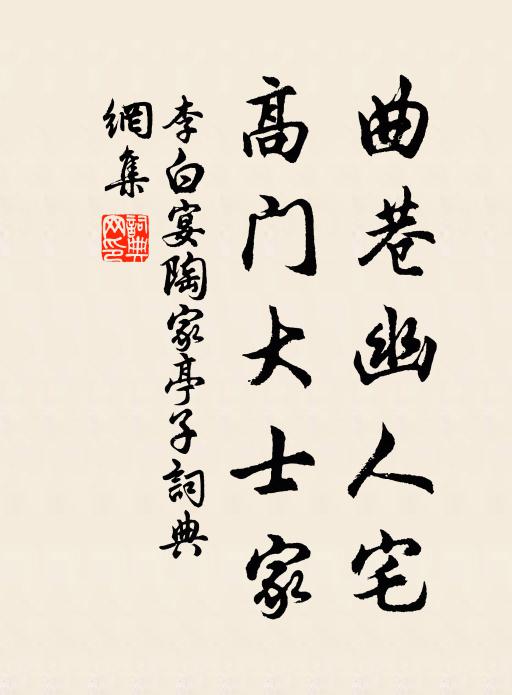 曲巷幽人宅
高門大士家
李白宴陶家亭子詞典
網集
詞典
網印